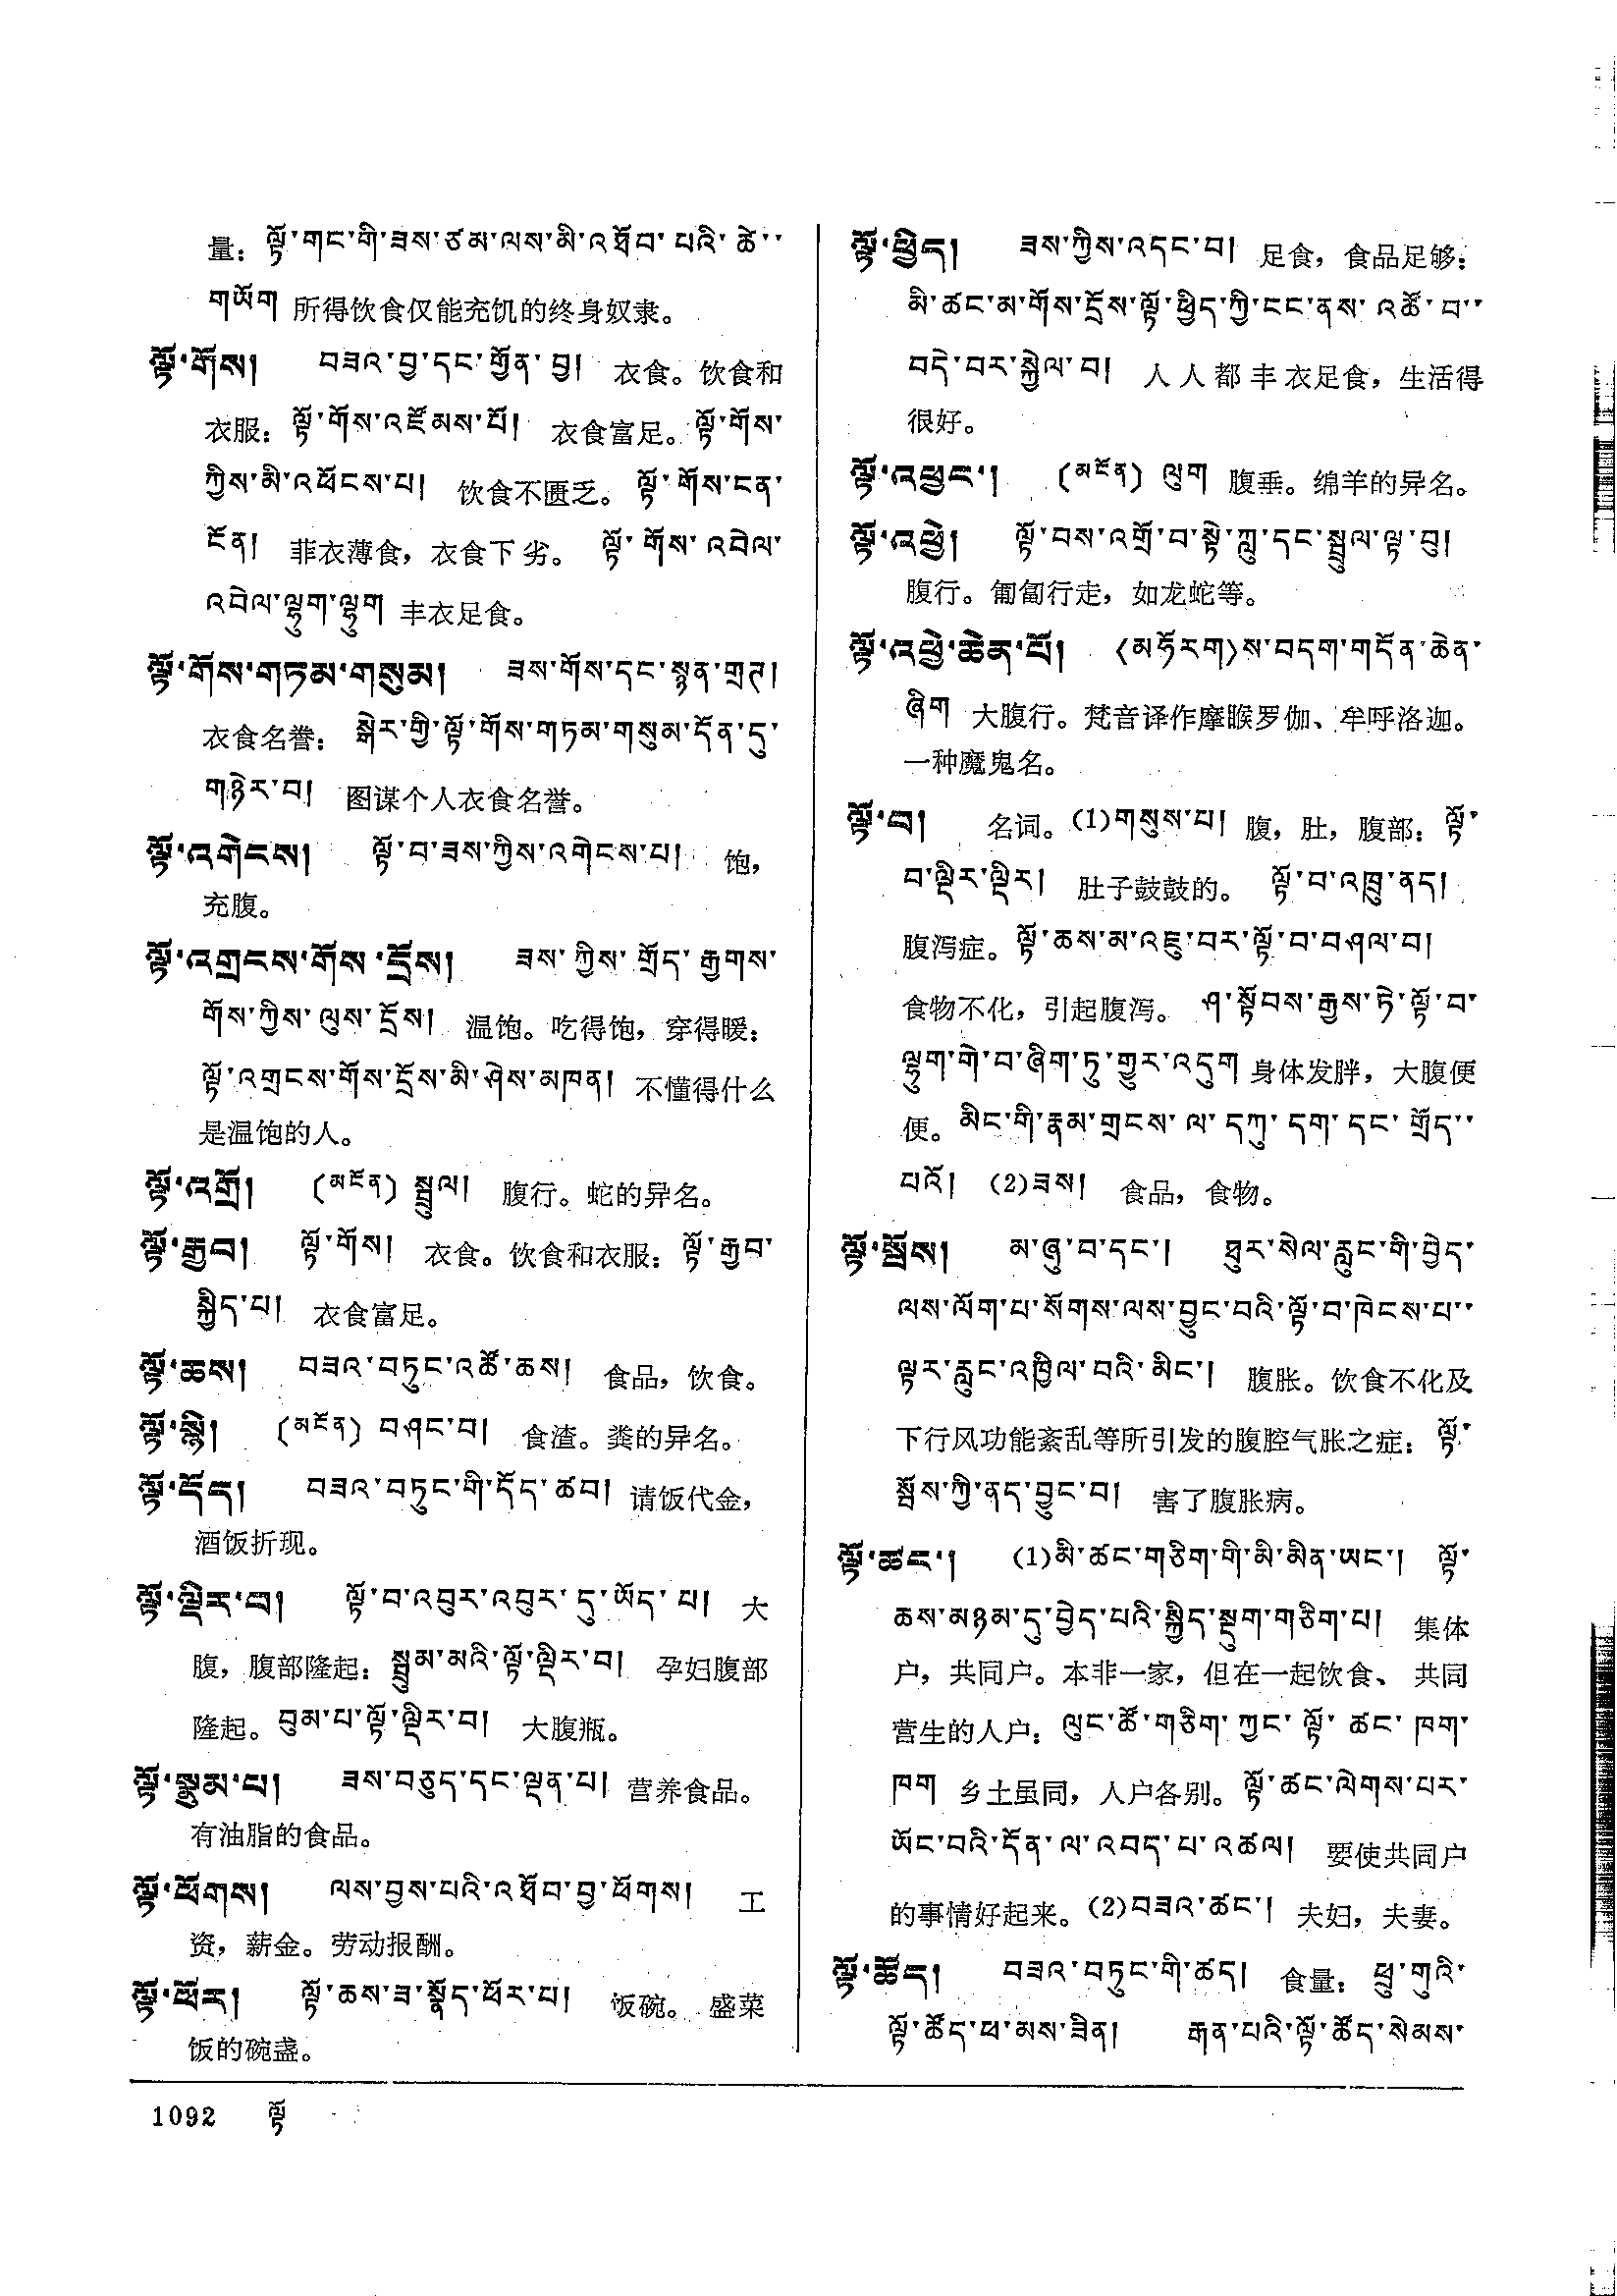 量： ལྟོ་གང་གི་ཟས་ཙམ་ལས་མི་འཐོབ་པའི་ཚེ་
གཡོག 所得饮食仅能充饥的终身奴隶。
ལྟོ་གོས། བཟའ་བྱ་དང་གྱོན་བྱ། 衣食。饮食和
衣服： ལྟོ་གོས་འཛོམས་པོ། 衣食富足。 ལྟོ་གོས་
ཀྱིས་མི་འཕོངས་པ། 饮食不匮乏。 ལྟོ་གོས་ངན་
ངོན། 菲衣薄食，衣食下劣。 ལྟོ་གོས་འབེལ་
འབེལ་ལྷུག་ལྷུག 丰衣足食。
ལྟོ་གོས་གཏམ་གསུམ། ཟས་གོས་དང་སྙན་གྲཊ།
衣食名誉： སྒེར་གྱི་ལྟོ་གོས་གཏམ་གསུམ་དོན་དུ་
གཉེར་བ། 图谋个人衣食名誉。
ལྟོ་འགེངས། ལྟོ་བ་ཟས་ཀྱིས་འགེངས་པ། 饱，
充腹。
ལྟོ་འགྲངས་གོས་དྲོས། ཟས་ཀྱིས་གྲོད་རྒྱགས་
གོས་ཀྱིས་ལུས་དྲོས། 温饱。吃得饱，穿得暖：
ལྟོ་འགྲངས་གོས་དྲོས་མི་ཤེས་མཁན། 不懂得什么
是温饱的人。
ལྟོ་འགྲོ། (མངོན) སྦྲུལ། 腹行。蛇的异名。
ལྟོ་རྒྱབ། ལྟོ་གོས། 衣食。饮食和衣服： ལྟོ་རྒྱབ་
སྐྱིད་པ། 衣食富足。
ལྟོ་ཆས། བཟའ་བཏུང་འཚོ་ཆས། 食品，饮食。
ལྟོ་སྙི། (མངོན) བཤང་བ། 食渣。粪的异名。
ལྟོ་དོད། བཟའ་བཏུང་གི་དོད་ཚབ། 请饭代金，
酒饭折现。
ལྟོ་ལྡིར་བ། ལྟོ་བ་འབུར་འབུར་དུ་ཡོད་པ། 大
腹，腹部隆起： སྦྲུམ་མའི་ལྟོ་ལྡིར་བ། 孕妇腹部
隆起。 བུམ་པ་ལྟོ་ལྡིར་བ། 大腹瓶。
ལྟོ་སྣུམ་པ། ཟས་བཅུད་དང་ལྡན་པ། 营养食品。
有油脂的食品。
ལྟོ་ཕོགས། ལས་བྱས་པའི་འཐོབ་བྱ་ཕོགས། 工
资，薪金。劳动报酬。
ལྟོ་ཕོར། ལྟོ་ཆས་ཟ་སྣོད་ཕོར་པ། 饭碗。盛菜
饭的碗盏。
ལྟོ་ཕྱེད། ཟས་ཀྱིས་འདང་བ། 足食，食品足够：
མི་ཚང་མ་གོས་དྲོས་ལྟོ་ཕྱིད་ཀྱི་ངང་ནས་འཚོ་བ་
བདེ་བར་སྐྱེལ་བ། 人人都丰衣足食，生活得
很好。
ལྟོ་འཕྱང་། (མངོན) ལུག 腹垂。绵羊的异名。
ལྟོ་འཕྱེ། ལྟོ་བས་འགྲོ་བ་སྟེ་ཀླུ་དང་སྦྲུལ་ལྟ་བུ།
腹行。匍匐行走，如龙蛇等。
ལྟོ་འཕྱེ་ཆེན་པོ། (མཧོརག)ས་བདག་གདོན་ཆེན་
ཞིག 大腹行。梵音译作摩睺罗伽、牟呼洛迦。
一种魔鬼名。
ལྟོ་བ། 名词。(1)གསུས་པ། 腹，肚，腹部： ལྟོ་
བ་ལྡིར་ལྡིར། 肚子鼓鼓的。 ལྟོ་བ་འཁྲུ་ནད།
腹泻症。 ལྟོ་ཆས་མ་འཇུ་བར་ལྟོ་བ་བཤལ་བ།
食物不化，引起腹泻。 ཤ་སྟོབས་རྒྱས་ཏེ་ལྟོ་བ་
ལྷུག་གེ་བ་ཞིག་ཏུ་གྱུར་འདུག 身体发胖，大腹便
便。 མིང་གི་རྣམ་གྲངས་ལ་དཀུ་དག་དང་གྲོད་
པའོ། (2)ཟས། 食品，食物。
ལྟོ་སྦོས། མ་ཞུ་བ་དང་། ཐུར་སེལ་རླུང་གི་བྱེད་
ལས་ལོག་པ་སོགས་ལས་བྱུང་བའི་ལྟོ་བ་ཁེངས་པ་
ལྟར་རླུང་འཁྱིལ་བའི་མིང་། 腹胀。饮食不化及
下行风功能紊乱等所引发的腹腔气胀之症： ལྟོ་
སྦོས་ཀྱི་ནད་བྱུང་བ། 害了腹胀病。
ལྟོ་ཚང་། (1)མི་ཚང་གཅིག་གི་མི་མིན་ཡང་། ལྟོ་
ཆས་མཉམ་དུ་བྱེད་པའི་སྐྱིད་སྡུག་གཅིག་པ། 集体
户，共同户。本非一家，但在一起饮食、共同
营生的人户： ལུང་ཚོ་གཅིག་ཀྱང་ལྟོ་ཚང་ཁག་
ཁག 乡土虽同，人户各别。 ལྟོ་ཚང་ལེགས་པར་
ཡོང་བའི་དོན་ལ་འབད་པ་འཚལ། 要使共同户
的事情好起来。(2)བཟའ་ཚང་། 夫妇，夫妻。
ལྟོ་ཚོད། བཟའ་བཏུང་གི་ཚད། 食量： ཕྲུ་གུའི་
ལྟོ་ཚོད་ཕ་མས་ཟིན། རྒན་པའི་ལྟོ་ཚོད་སེམས་
1092 ལྟོ